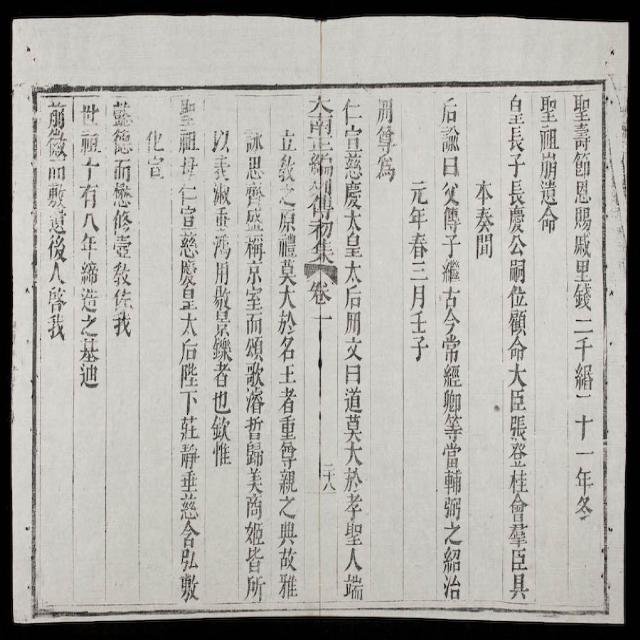 聖壽節恩賜戚里錢二千緡二十一年冬
聖祖崩遺命
皇長子長慶公嗣位顧命大臣張登桂會羣臣具
本奏聞
后諭曰父傳子繼古今常經卿等當輔弼之紹治
元年春三月壬子
冊尊爲
仁宣慈慶太皇太后冊文曰道莫大於孝聖人端
大南正編列傳初集 卷一 二十八
立教之原禮莫大於名王者重尊親之典故雅
詠思齊盛稱京室而頌歌濬哲歸美商姬皆所
以表淑垂鴻用敷景鑠者也欽惟
聖祖母仁宣慈慶皇太后陛下莊靜垂慈含弘敷
化宣
懿德而懋修壼教佐我
世祖十有八年締造之基迪
前徽而敷遺後人啓我